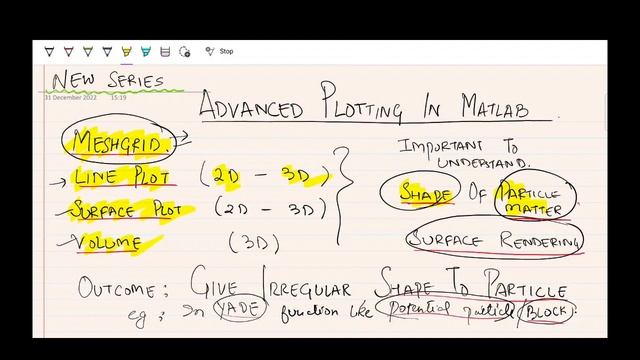 Stop
NEW SERIES
31 December 2022 15:19
ADVANCED PLOTTING IN MATLAB
MESHGRID. →
→ LINE PLOT (2D - 3D)
SURFACE PLOT (2D - 3D)
VOLUME (3D)
IMPORTANT TO
UNDERSTAND.
SHAPE OF PARTICLE
MATTER
SURFACE RENDERING
OUTCOME; GIVE IRREGULAR SHAPE TO PARTICLE
eg; In YADE function like potential particle/BLOCK.